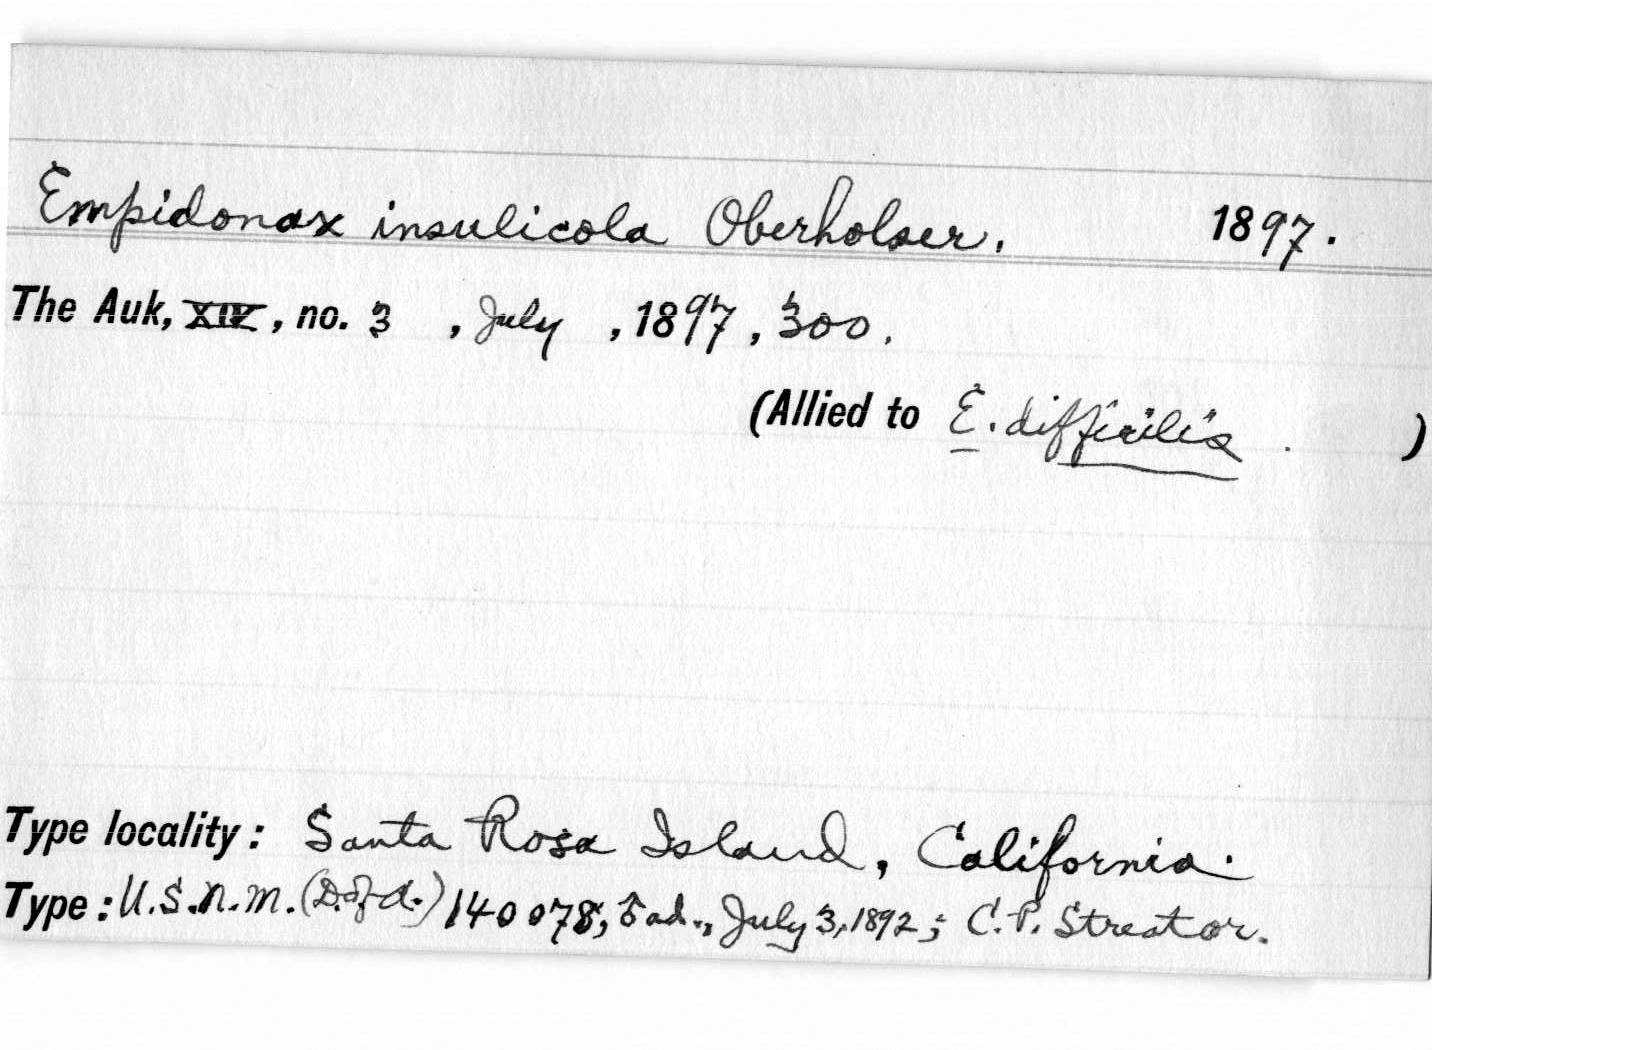 Empidonax insulicola Oberholser. 1897.
The Auk, XIV, no. 3, July, 1897, 300.
(Allied to E. difficilis. )
Type locality: Santa Rosa Island, California.
Type: U.S.N.M. (D. of A.) 140078, ad., July 3, 1892; C. P. Streator.